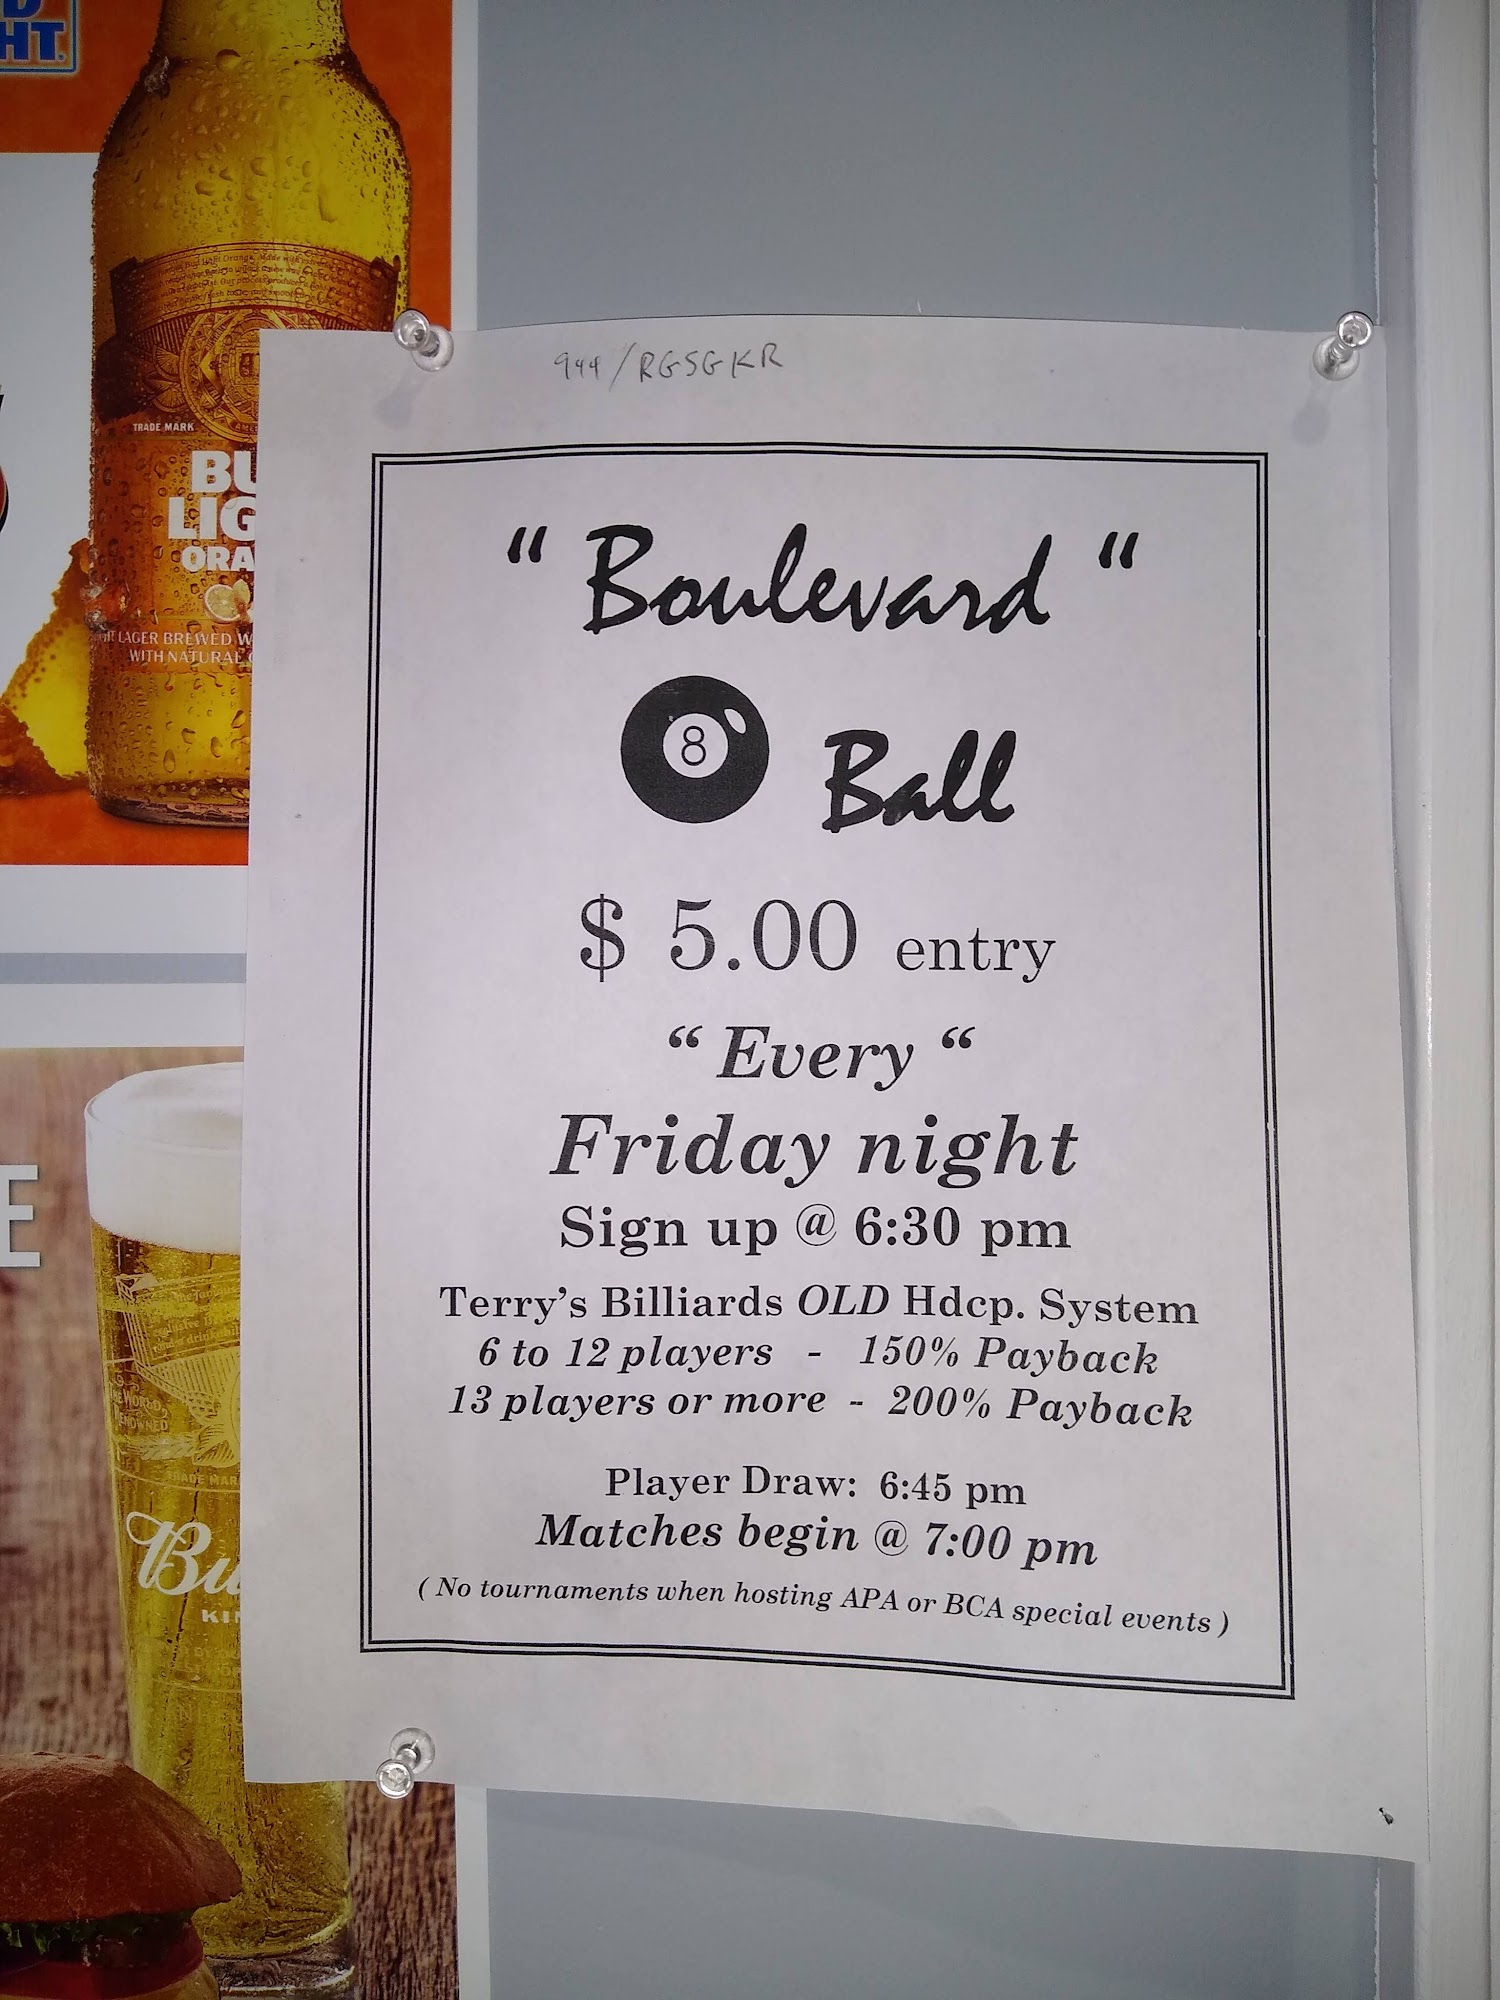 HT.
TRADE MARK
BU
LIG
ORA
LAGER BREWED W
WITH NATURAL
944/RGSGKR
" Boulevard "
8 Ball
$ 5.00 entry
“ Every “
Friday night
Sign up @ 6:30 pm
Terry’s Billiards OLD Hdcp. System
6 to 12 players - 150% Payback
13 players or more - 200% Payback
Player Draw: 6:45 pm
Matches begin @ 7:00 pm
( No tournaments when hosting APA or BCA special events )
E
TRADE MAR
Bu
KIN